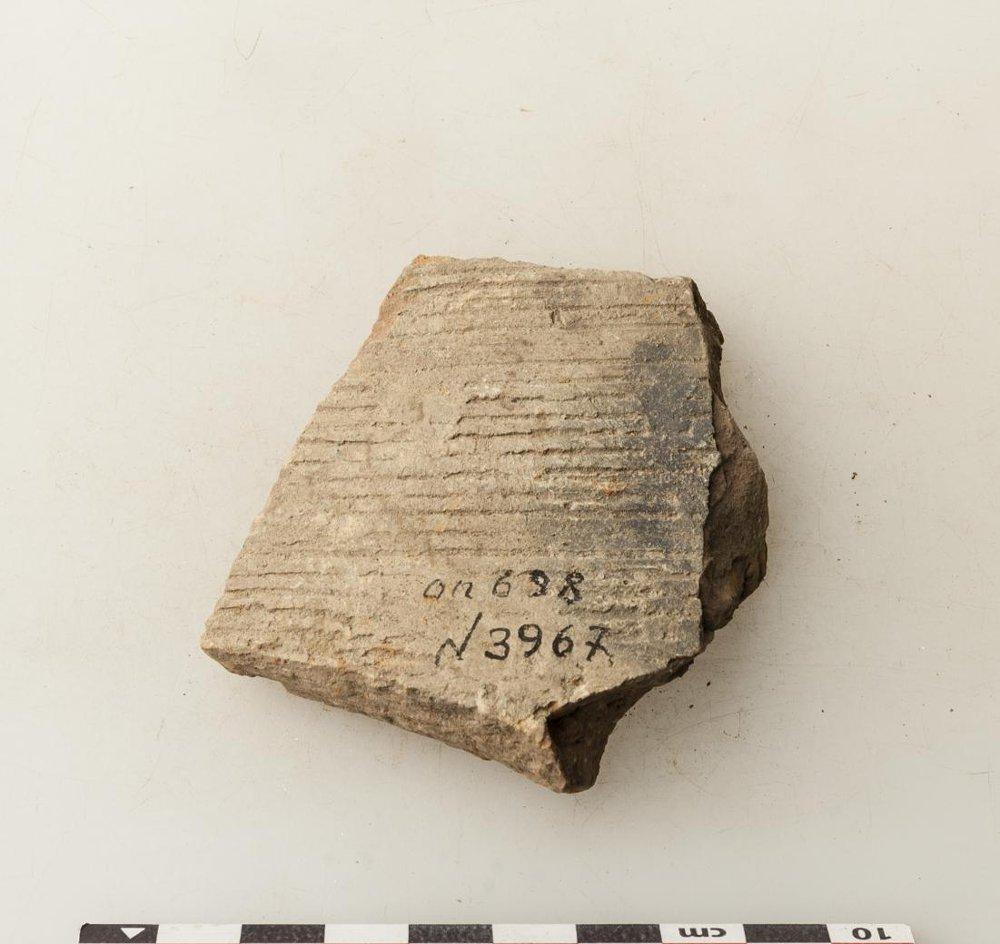 оп 698
N 3967
cm
10